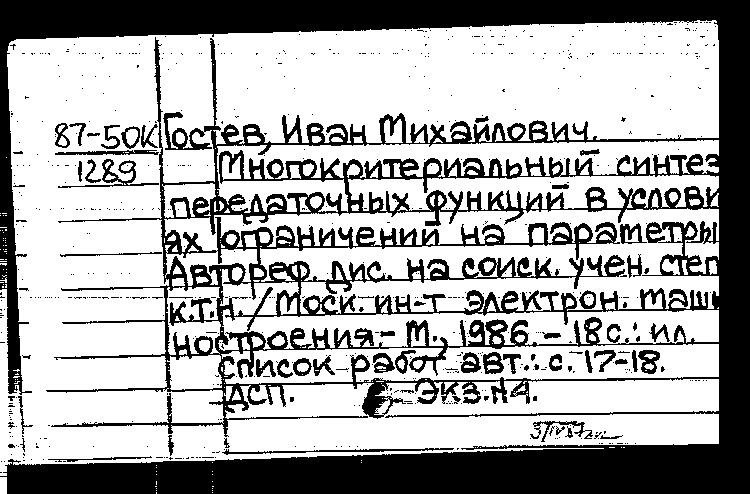 87-50К Гостев, Иван Михайлович.
1289 Многокритериальный синтез
передаточных функций в услови
ях ограничений на параметры
Автореф. дис. на соиск. учен. степ
к.т.н. / Моск. ин-т электрон. маши
ностроения.- М., 1986. - 18 с.: ил.
Список работ авт.: с. 17-18.
ДСП. Экз. №4.